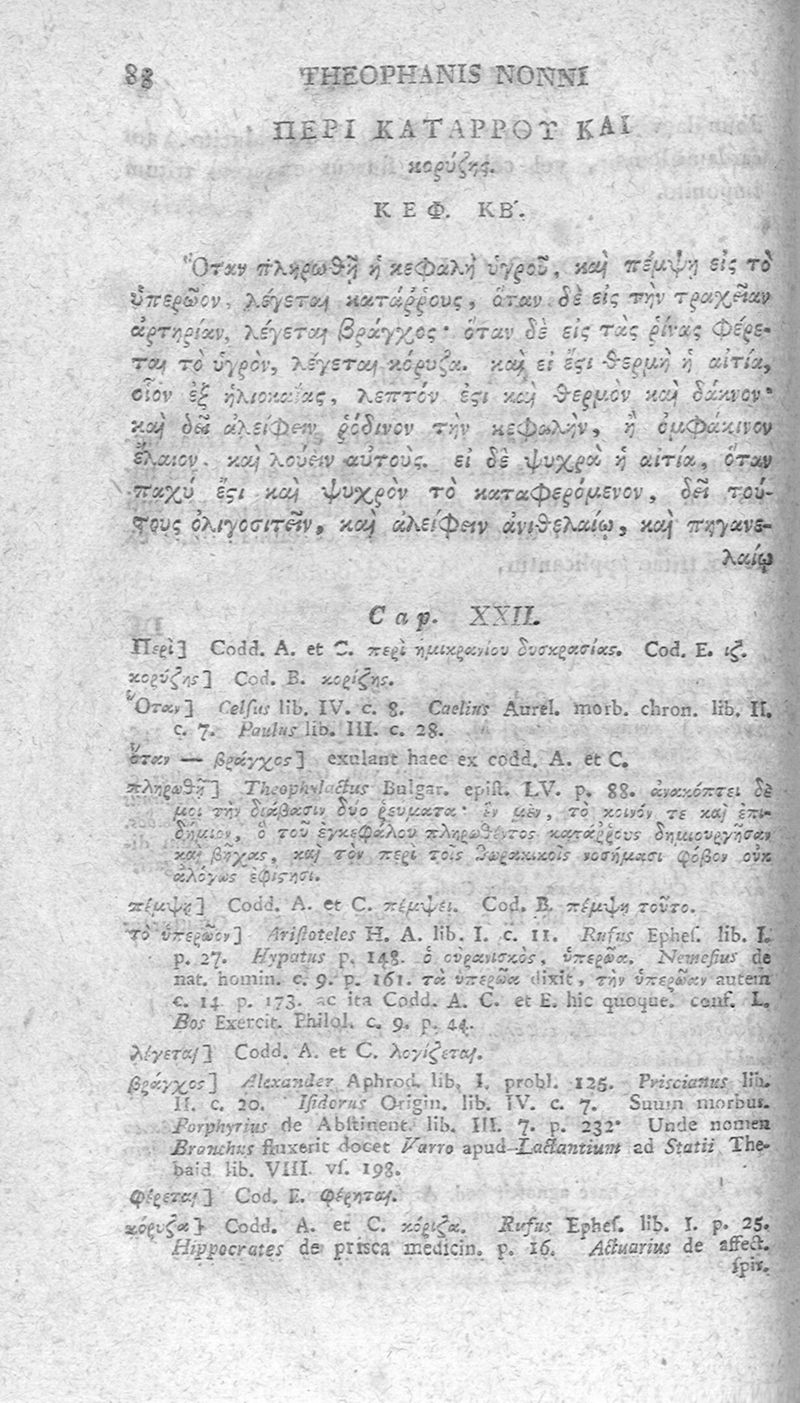 88 THEOPHANIS NONNI
ΠΕΡΙ ΚΑΤΑΡΡΟΥ ΚΑΙ
κορύζης.
ΚΕΦ. ΚΒ΄.
Ὅταν πληρωθῇ ἡ κεφαλὴ ὑγροῦ, καὶ πέμψῃ εἰς τὸ
ὑπερῶον, λέγεται κατάῤῥους, ὅταν δὲ εἰς τὴν τραχεῖαν
ἀρτηρίαν, λέγεται βράγχος· ὅταν δὲ εἰς τὰς ῥίνας φέρε-
ται τὸ ὑγρὸν, λέγεται κόρυζα. καὶ εἰ ἔστι θερμὴ ἡ αἰτία,
οἷον ἐξ ἡλιοκαΐας, λεπτόν ἐστι καὶ θερμὸν καὶ δάκνον·
καὶ δεῖ ἀλείφειν ῥόδινον τὴν κεφαλὴν, ἢ ὀμφάκινον
ἔλαιον. καὶ λούειν αὐτούς. εἰ δὲ ψυχρὰ ἡ αἰτία, ὅταν
παχύ ἔστι καὶ ψυχρὸν τὸ καταφερόμενον, δεῖ τού-
τους ὀλιγοσιτεῖν, καὶ ἀλείφειν ἀνιθελαίῳ, καὶ πηγανε-
λαίῳ
Cap. XXII.
Περὶ] Codd. A. et C. περὶ ἡμικρανίου δυσκρασίας. Cod. E. ιζ.
κορύζης] Cod. B. κορίζης.
Ὅταν] Celsus lib. IV. c. 8. Caelius Aurel. morb. chron. lib. II.
c. 7. Paulus lib. III. c. 28.
ὅταν — βράγχος] exulant haec ex codd. A. et C.
πληρωθῇ] Theophylactus Bulgar. epiſt. LV. p. 88. ἀνακόπτει δέ
μοι τὴν διάβασιν δύο ῥεύματα· ἓν μὲν, τὸ κοινόν τε καὶ ἐπι-
δήμιον, ὁ τοῦ ἐγκεφάλου πληρωθέντος κατάῤῥους δημιουργῆσαν
καὶ βῆχας, καὶ τὸν περὶ τοῖς θωρακικοῖς νοσήμασι φόβον οὐκ
ἀλόγως ἐφίστησι.
πέμψῃ] Codd. A. et C. πέμψει. Cod. B. πέμψῃ τοῦτο.
τὸ ὑπερῶον] Ariſtoteles H. A. lib. I. c. 11. Rufus Epheſ. lib. I.
p. 27. Hypatus p. 148. ὁ οὐρανισκὸς, ὑπερῶα. Nemeſius de
nat. homin. c. 9. p. 161. τὰ ὑπερῶα dixit, τὴν ὑπερῶαν autem
c. 14. p. 173. ac ita Codd. A. C. et E. hic quoque. conf. L.
Bos Exercit. Philol. c. 9. p. 44.
λέγεται] Codd. A. et C. λογίζεται.
βράγχος] Alexander Aphrod. lib. I. probl. 125. Priscianus lib.
II. c. 20. Iſidorus Origin. lib. IV. c. 7. Suum morbus.
Porphyrius de Abſtinent. lib. III. 7. p. 232. Unde nomen
Bronchus fluxerit docet Varro apud Lactantium ad Statii The-
baid lib. VIII. vſ. 198.
φέρεται] Cod. E. φέρηται.
κόρυζα] Codd. A. et C. κόριζα. Rufus Epheſ. lib. I. p. 25.
Hippocrates de prisca medicin. p. 16. Actuarius de affect.
ſpir.